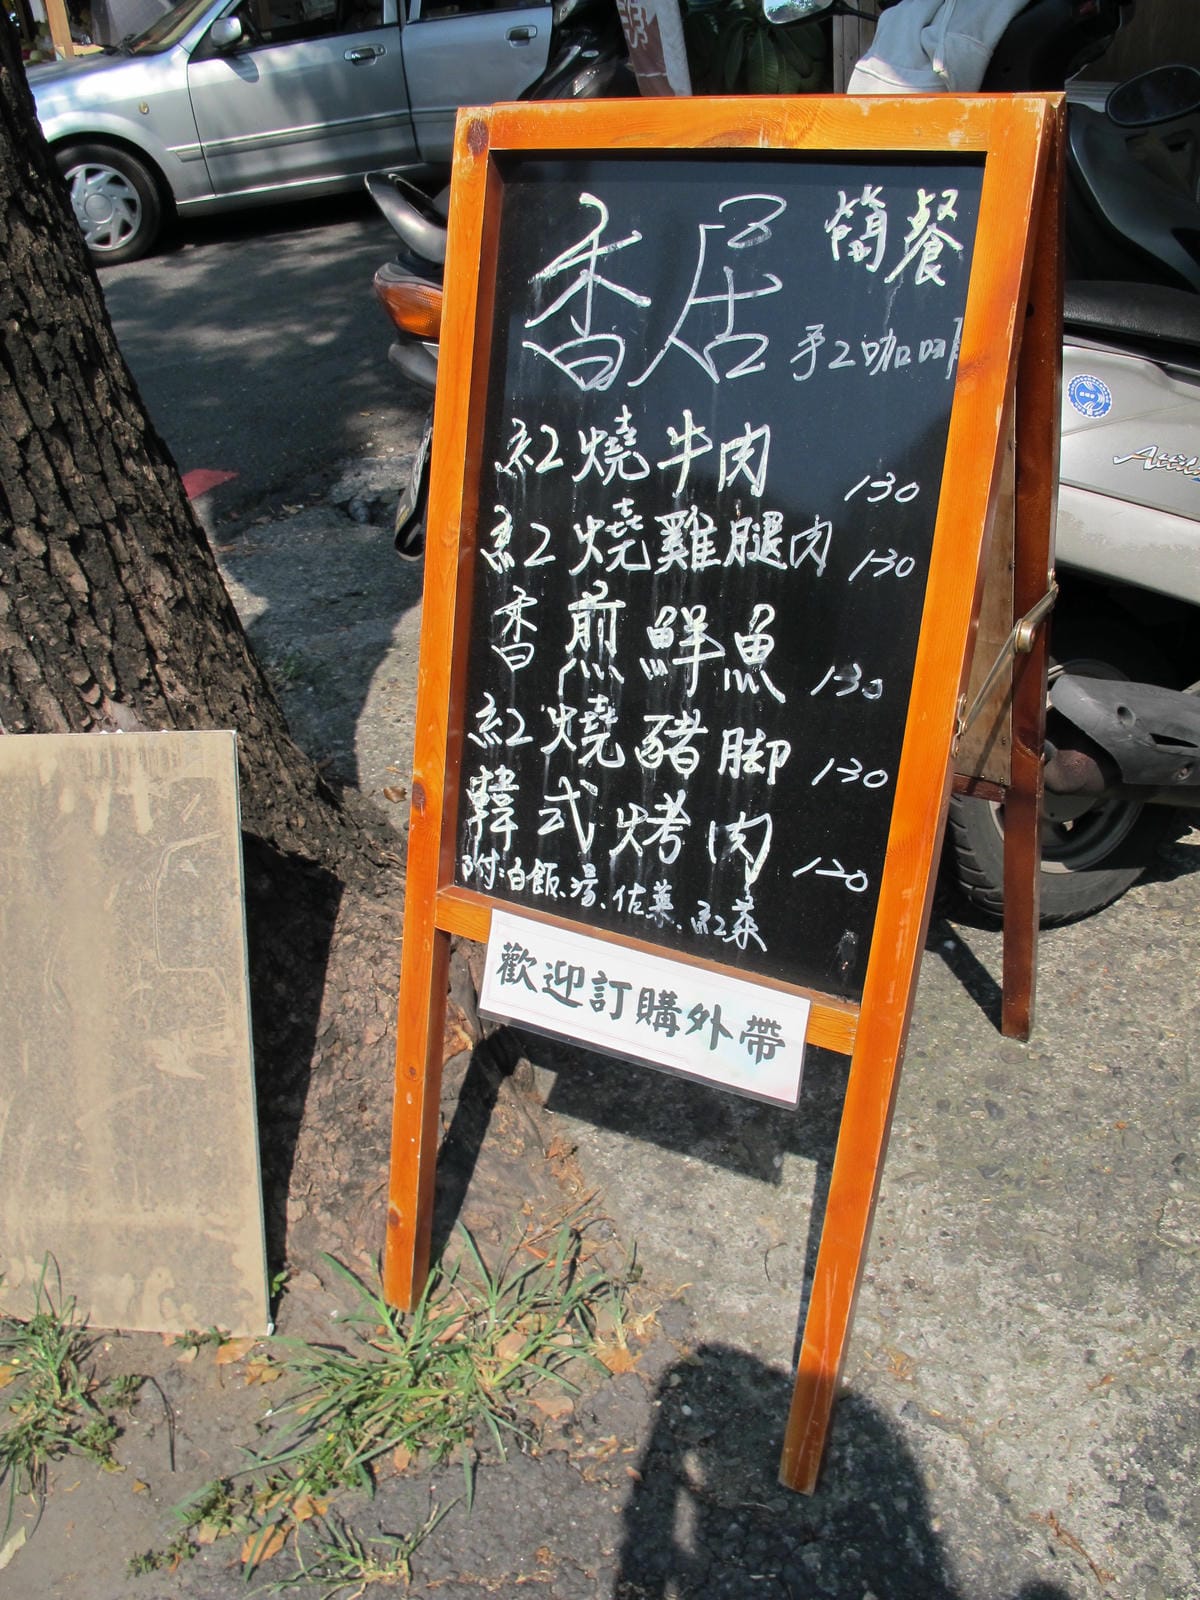 香居 簡餐
手工咖啡
紅燒牛肉 130
紅燒雞腿肉 130
香煎鮮魚 130
紅燒豬脚 130
韓式烤肉 120
附:白飯、湯、佐菜、紅茶
歡迎訂購外帶
Attila